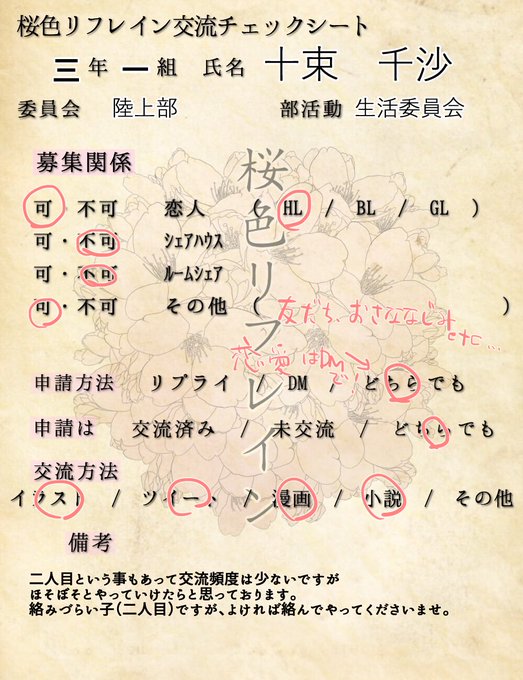 桜色リフレイン交流チェックシート
三年 一組 氏名 十束 千沙
委員会 陸上部 部活動 生活委員会
募集関係
桜色リフレイン
可・不可 恋人 ( HL / BL / GL )
可・不可 ｼｪｱﾊｳｽ
可・不可 ﾙｰﾑｼｪｱ
可・不可 その他 ( 友だち、おさななじみetc... )
恋愛はDMで!
申請方法 リプライ / DM / どちらでも
申請は 交流済み / 未交流 / どちらでも
交流方法
イラスト / ツイート / 漫画 / 小説 / その他
備考
二人目という事もあって交流頻度は少ないですが
ほそぼそとやっていけたらと思っております。
絡みづらい子(二人目)ですが、よければ絡んでやってくださいませ。